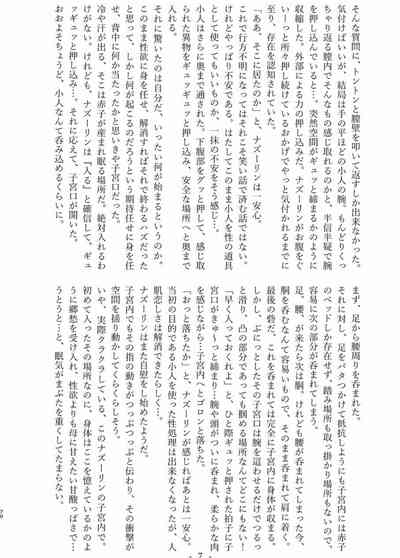 そんな質問に、トントンと腟壁を叩いて返すしか出来なかった。
気付けばいいが、結局は手の平ほどの小人の腕。もんどりくっ
ちゃり返る腟内でそんなもの感じ取れるのかと、半信半疑で腕
を押し込んでいると…、突然空間がギュッと締まるかのように
収縮した。外部による力の押し込みだ、ナズーリンがお腹をぐ
いーっと所々押し続けているおかげでやっと気付かれるまでに
至り、存在を認知されていた。
「ああ、そこに居たのか」と、ナズーリンは一安心。
これで行方不明になってはそれこそ笑い話で済む話ではない。
けれどやっぱり不安である、はたしてこのまま小人を性の道具
として使ってもいいものか、一抹の不安をそう感じ…。
小人はさらに奥まで通された。下腹部をグッと押して、感じ取
られた異物をギュッギュッと押し込み、安全な場所へと奥まで
入れる。
それに驚いたのは自分だ、いったい何が始まるというのか。
このまま性欲に身を任せ、解消すればそれで終わるハズだった
と思って、しかし何が起こるのだろうという期待任せに身を任
せ、背中に何か当たったかと思いきや子宮口だった。
冷や汗が出る、そこは赤子が産まれ眠る場所だ、絶対入れるわ
けがない。けれども、ナズーリンは『入る』と確信して、ギュ
ッギュッと押し込み…。それに応えて、子宮口が開いていった。
おおよそちょうど、小人なんて呑み込めるくらいに。
まず、足から腰周りを呑まれた。
それに対し、足をバタつかせて抵抗しようにも子宮内には赤子
のベッドしか存在せず、踏み場所も取っ掛かり場所もないので、
容易に次の部分が呑まれてしまう。
足、腰、が来たら次は胴、けれども腰が呑まれてしまった今、
胴を呑むなんて容易いもので、そのまま呑まれて肩に着く。
最後の砦だ、これを呑まれては完全に子宮内に身体が収まる。
しかし、ぷにっとしたその子宮口は腕を這わせるだけでつるっ
と滑り、凸の部分であっても掴める場所なんてどこにもない！
「早く入っておくれよ」と、ひと際ギュッと押された拍子に子
宮口がきゅ～っと締まり…腕や頭がついに呑まれ、柔らかな肉
を感じながら…子宮内へとゴロンと落ちた。
「おっと落ちたか」と、ナズーリンが感じればあとは一安心。
当初の目的である小人を使った性処理は出来なくなったが、人
肌恋しさは解消できたらしく…。
ナズーリンはまた自慰をし始めたようだ。
子宮内でもその指の動きがつっぷつっぷと伝わり、その衝撃が
空間を揺り動かしてくらくらしそう。
いや、実際クラクラしている、このナズーリンの子宮内で。
初めて入ったその場所なのに、身体はここを憶えているかのよ
うに郷愁を受け入れ、性欲よりも母に甘えたい甘酸っぱさで…
うとうと…と、眠気がまぶたを重くしてたまらない。
7